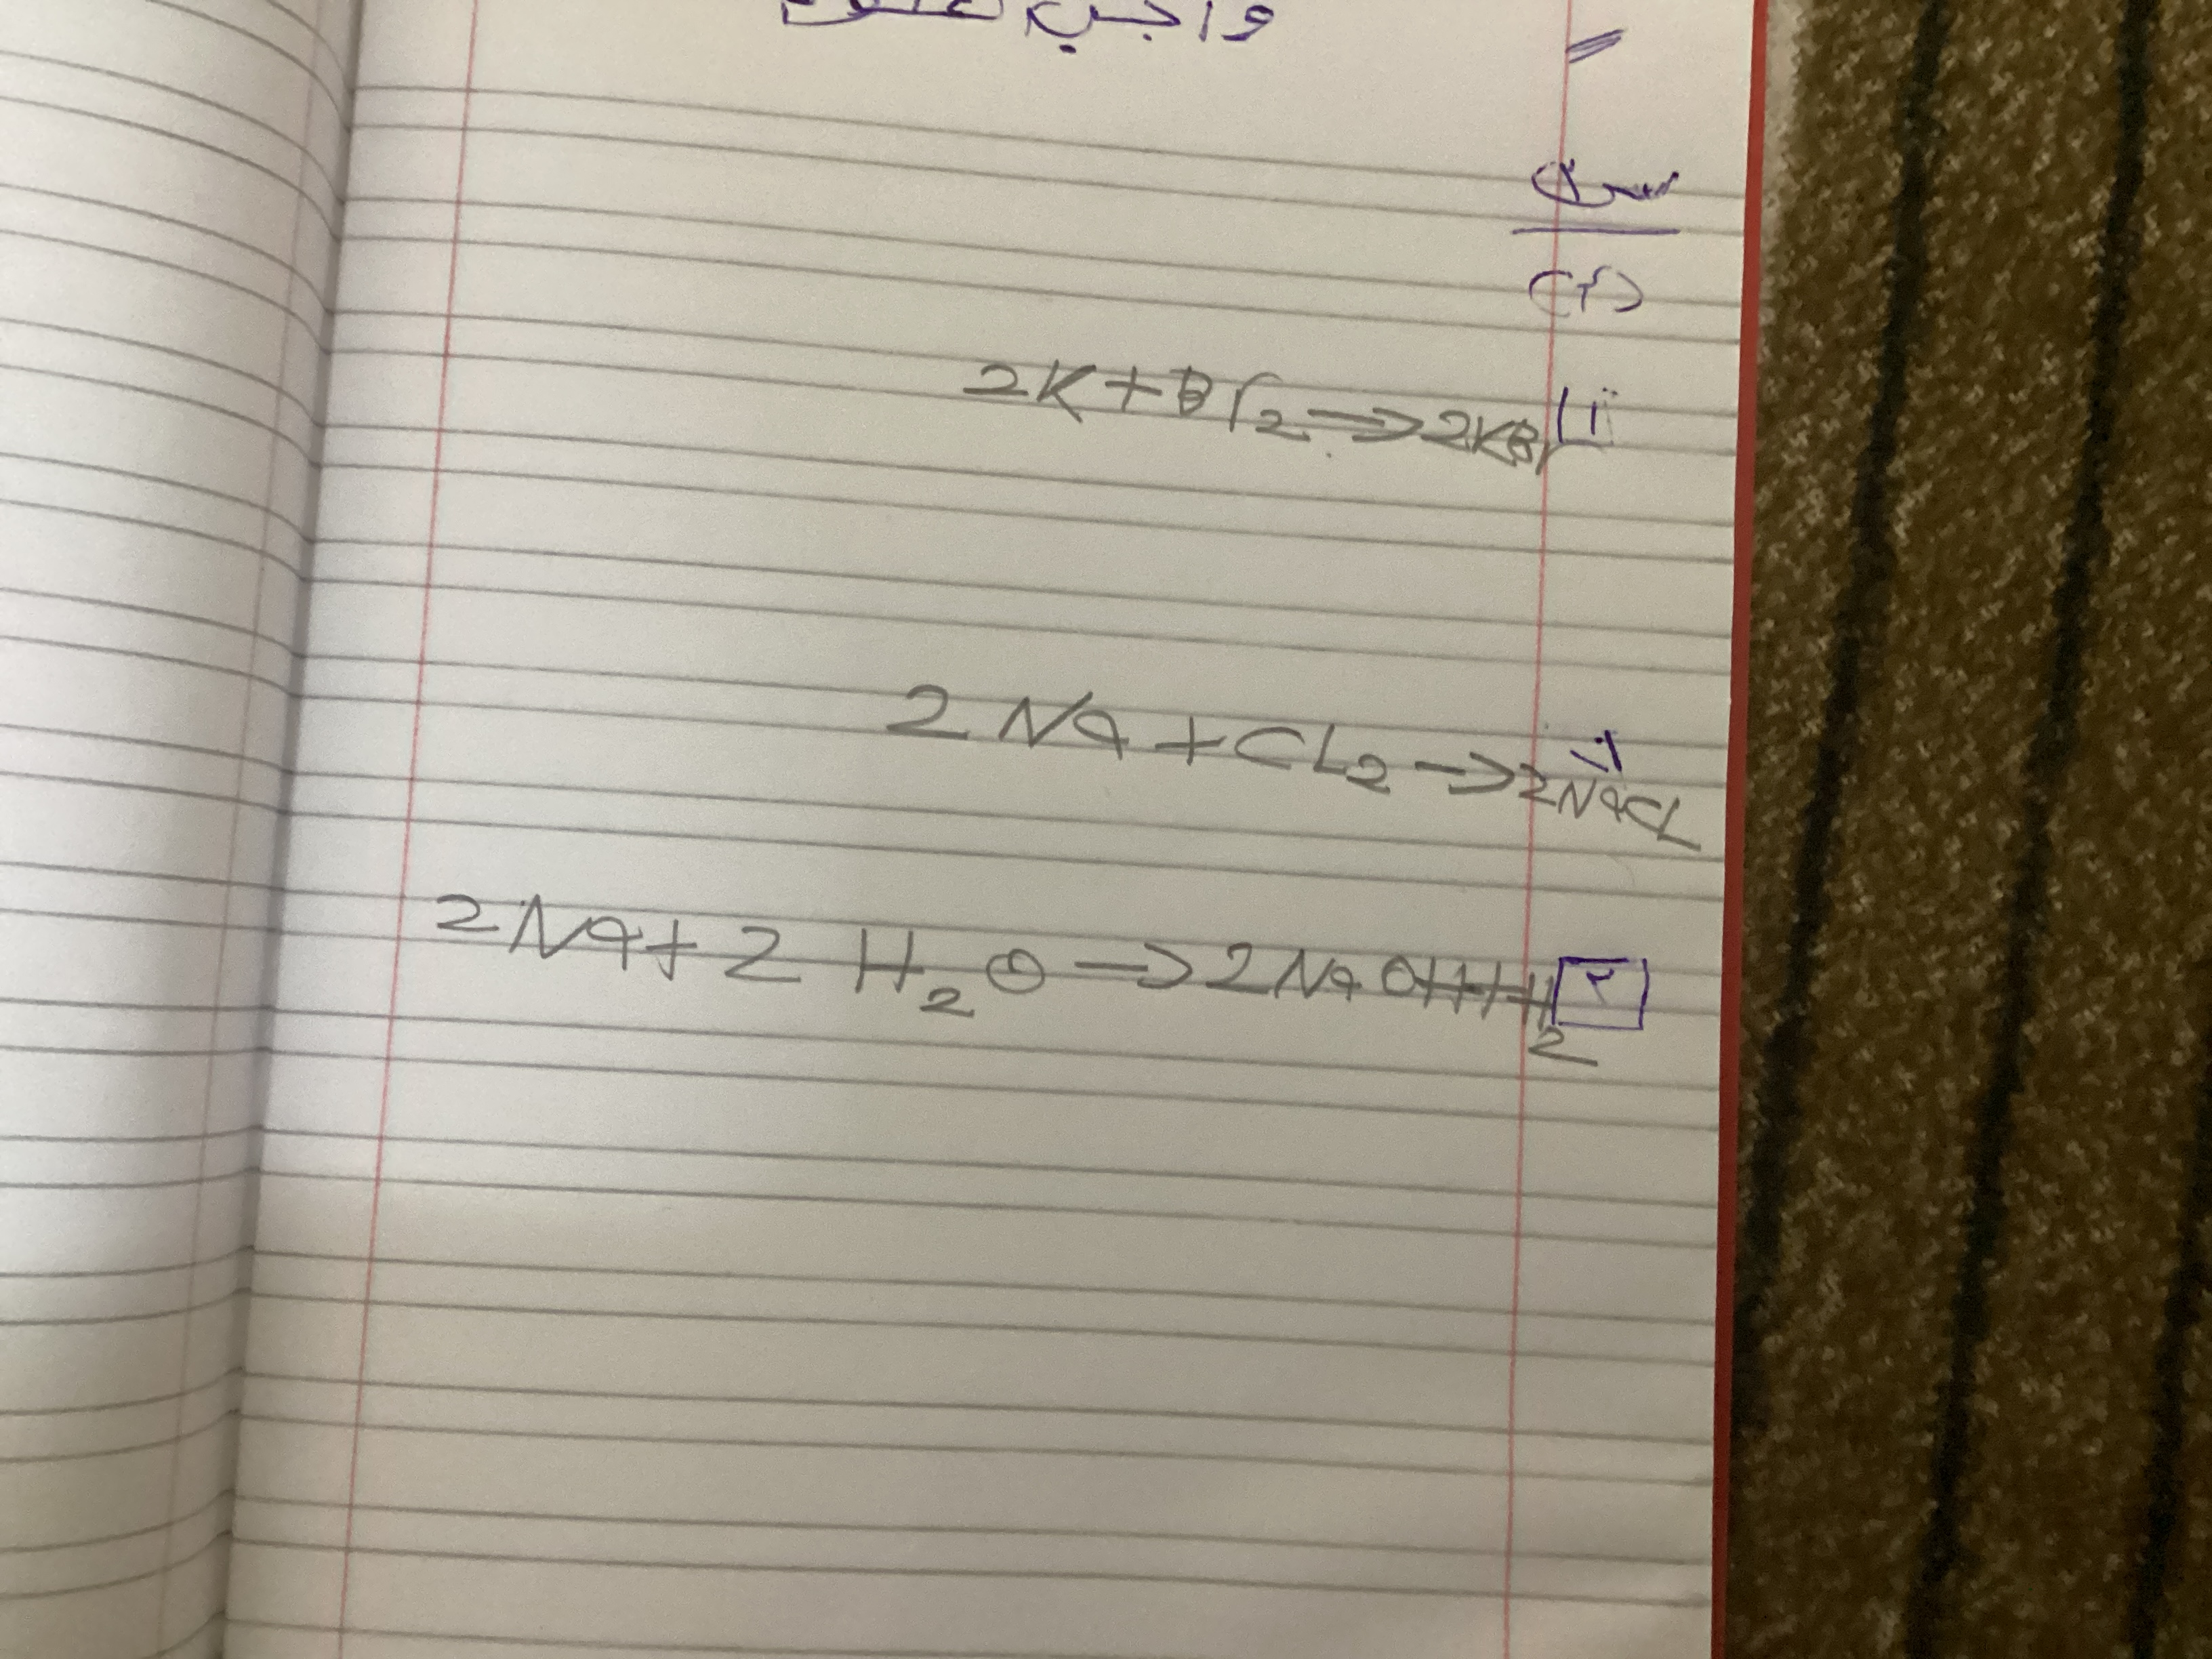 واجب علوم
(٢)
2K + Br2 → 2KBr
2 Na + CL2 → 2NaCL
ب
2Na + 2 H2O → 2NaOH + H2
٢